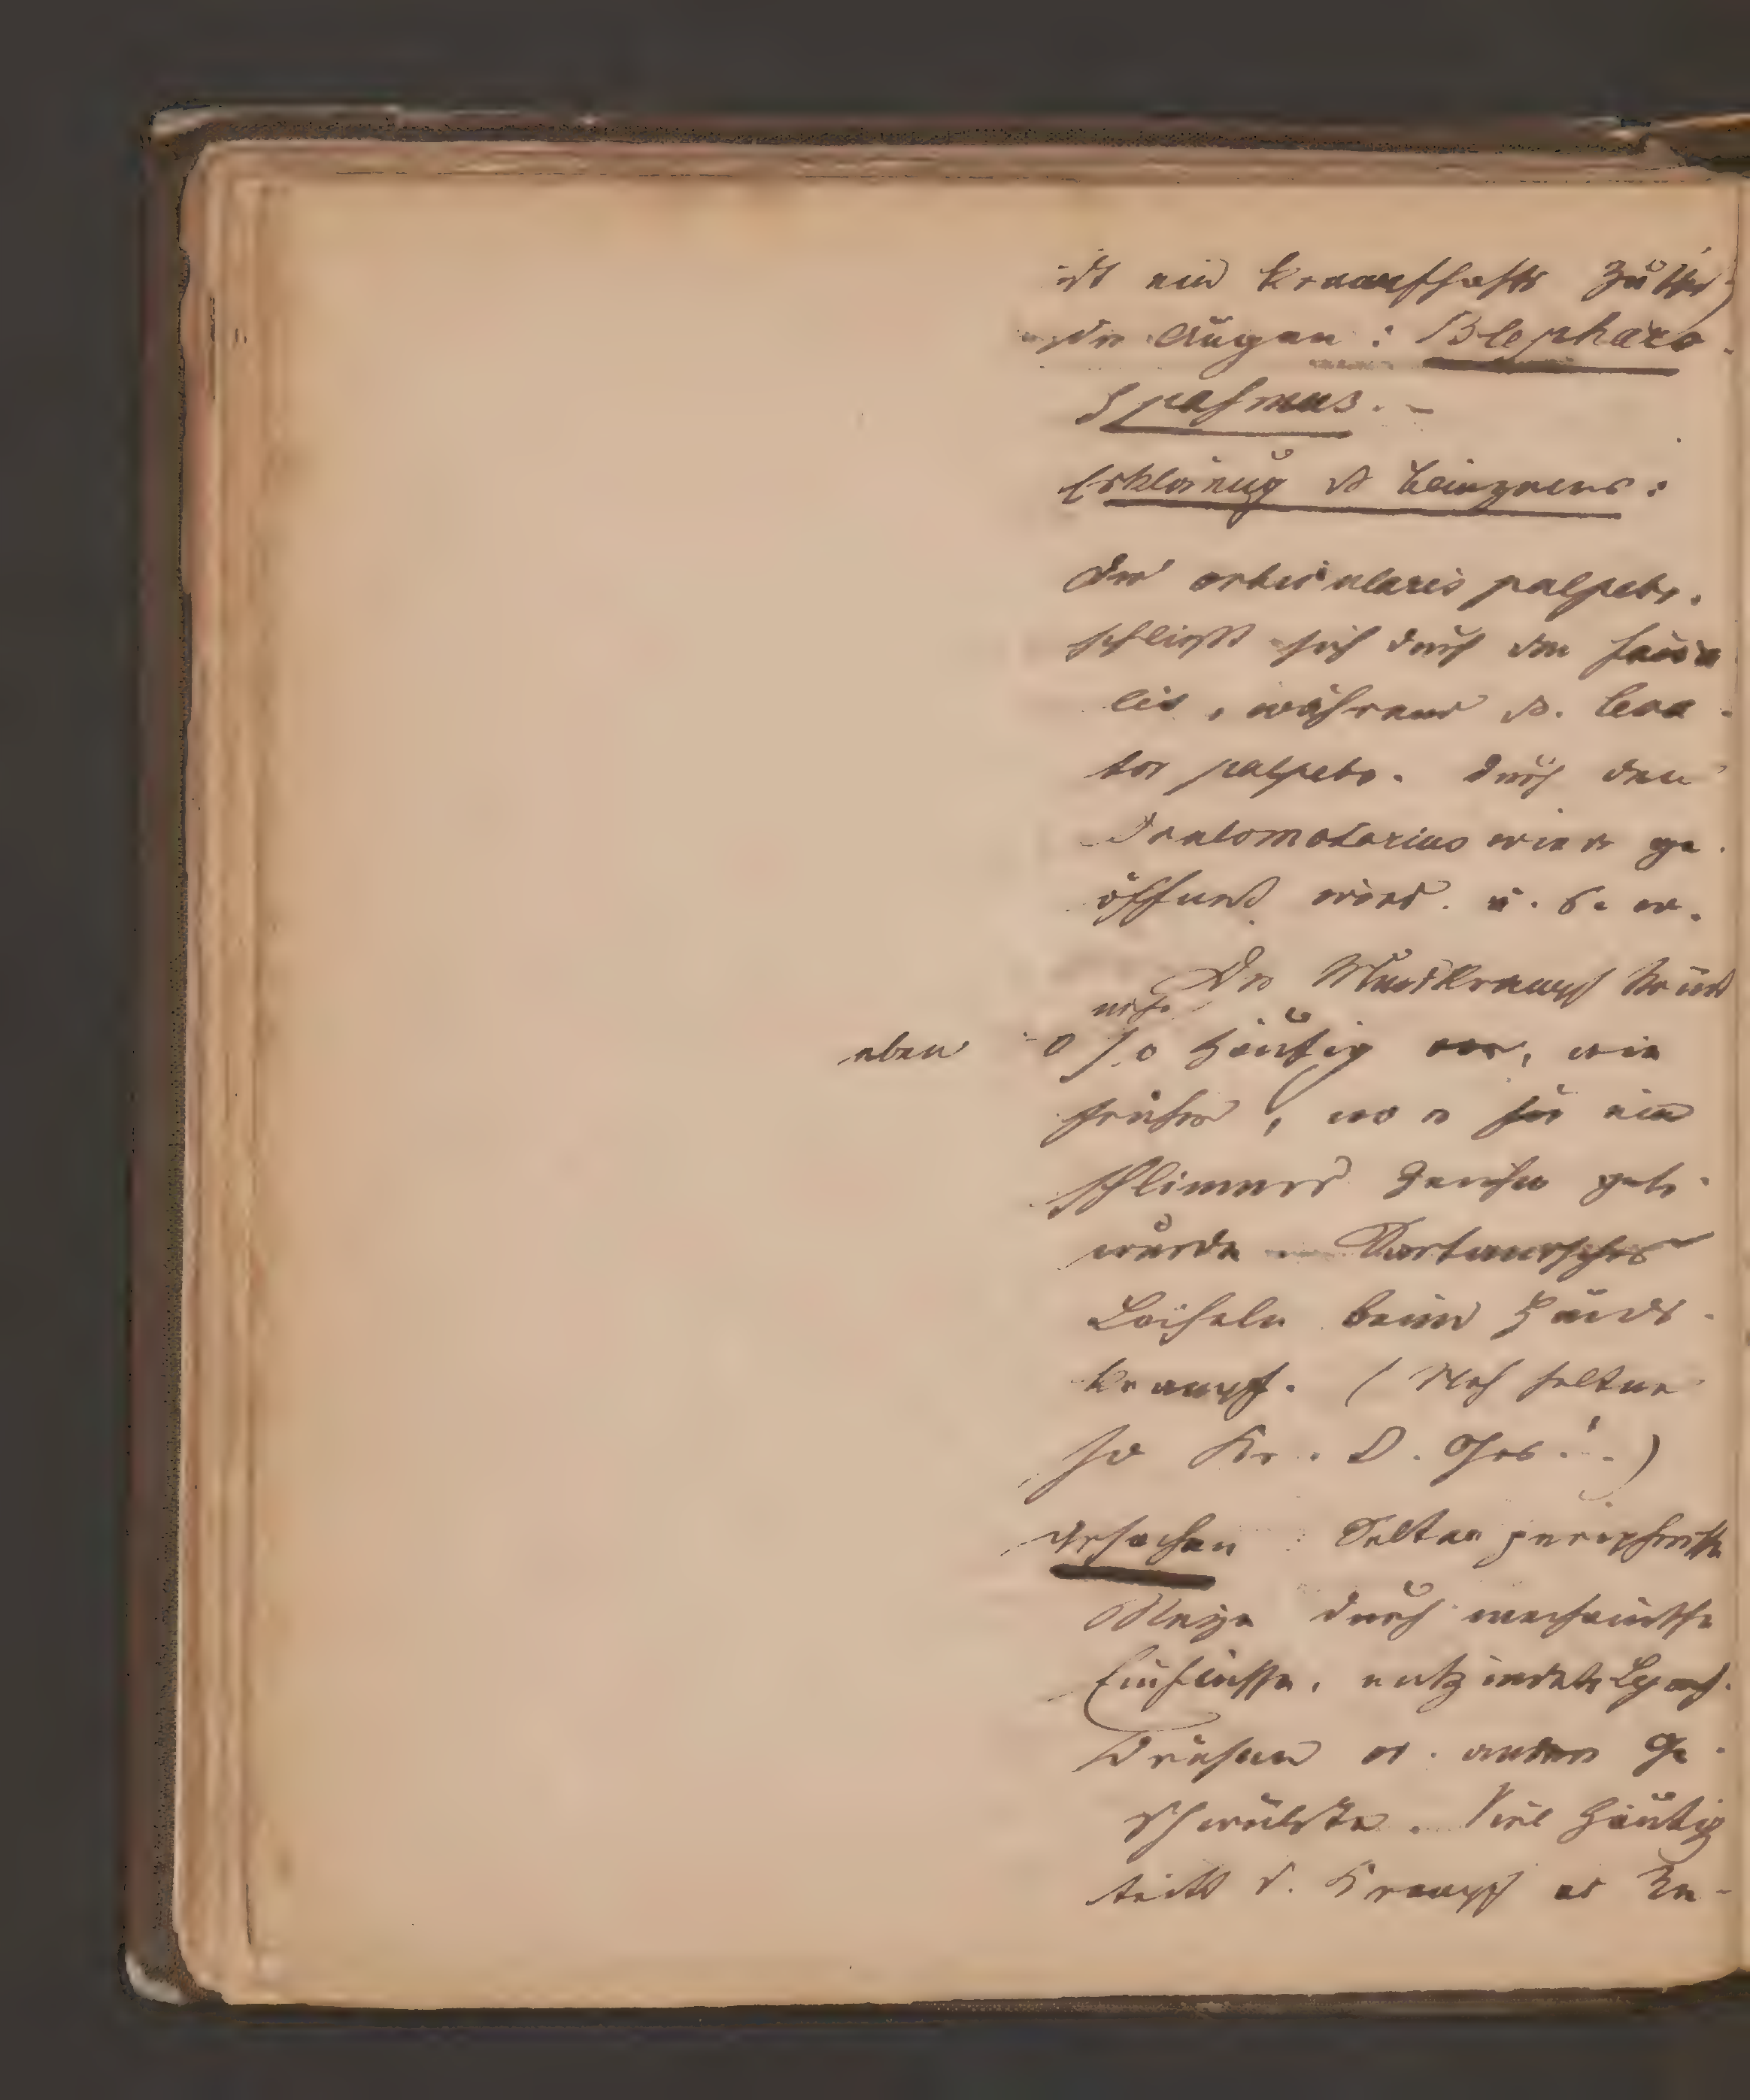 ist ein krampfhaftes
der Augen: Blepharo-
spasmus. –
Erklärung d. Blinzelns:
Der orbicularis palpebr.
schließt sich durch den facia
lis, während d. leva-
tor palpebr. durch den
Oculomotorius wieder ge-
öffnet wird. u. s. w.
Der Mundkrampf kömt
nicht
eben so häufig vor, wie
früher, wo er für ein
schlimmes Zeichen geh.
wurde
Lächeln beim
krampf. (Noch seltner
Ursachen: Selten peripherische
Reize durch mechanische
Einflüsse, entzündete Lymph-
drüsen od. andere Ge-
schwülste. Viel häufig
tritt d. Krampf